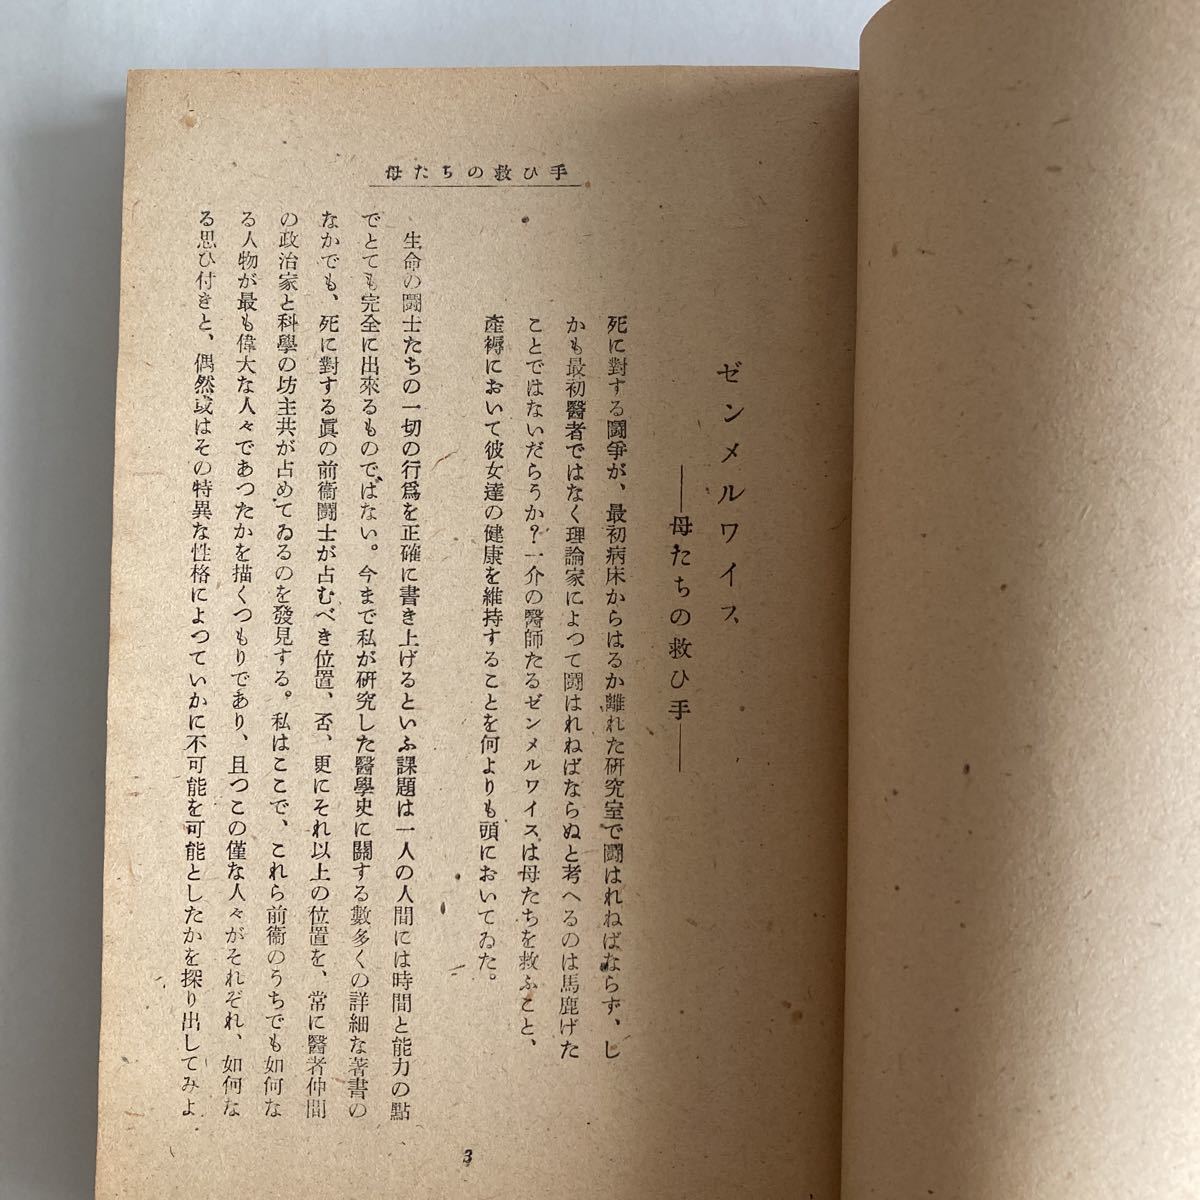 母たちの救ひ手
ゼンメルワイス
――母たちの救ひ手――
死に對する鬪爭が、最初病床からはるか離れた硏究室で鬪はれねばならず、し
かも最初醫者ではなく理論家によつて鬪はれねばならぬと考へるのは馬鹿げた
ことではないだらうか？一介の醫師たるゼンメルワイスは母たちを救ふこと、
產褥において彼女達の健康を維持することを何よりも頭においてゐた。
生命の鬪士たちの一切の行爲を正確に書き上げるといふ課題は一人の人間には時間と能力の點
でとても完全に出來るものではない。今まで私が硏究した醫學史に關する數多くの詳細な著書の
なかでも、死に對する眞の前衞鬪士が占むべき位置、否、更にそれ以上の位置を、常に醫者仲間
の政治家と科學の坊主共が占めてゐるのを發見する。私はここで、これら前衞のうちでも如何な
る人物が最も偉大な人々であつたかを描くつもりであり、且つこの僅な人々がそれぞれ、如何な
る思ひ付きと、偶然或はその特異な性格によつていかに不可能を可能としたかを探り出してみよ
3